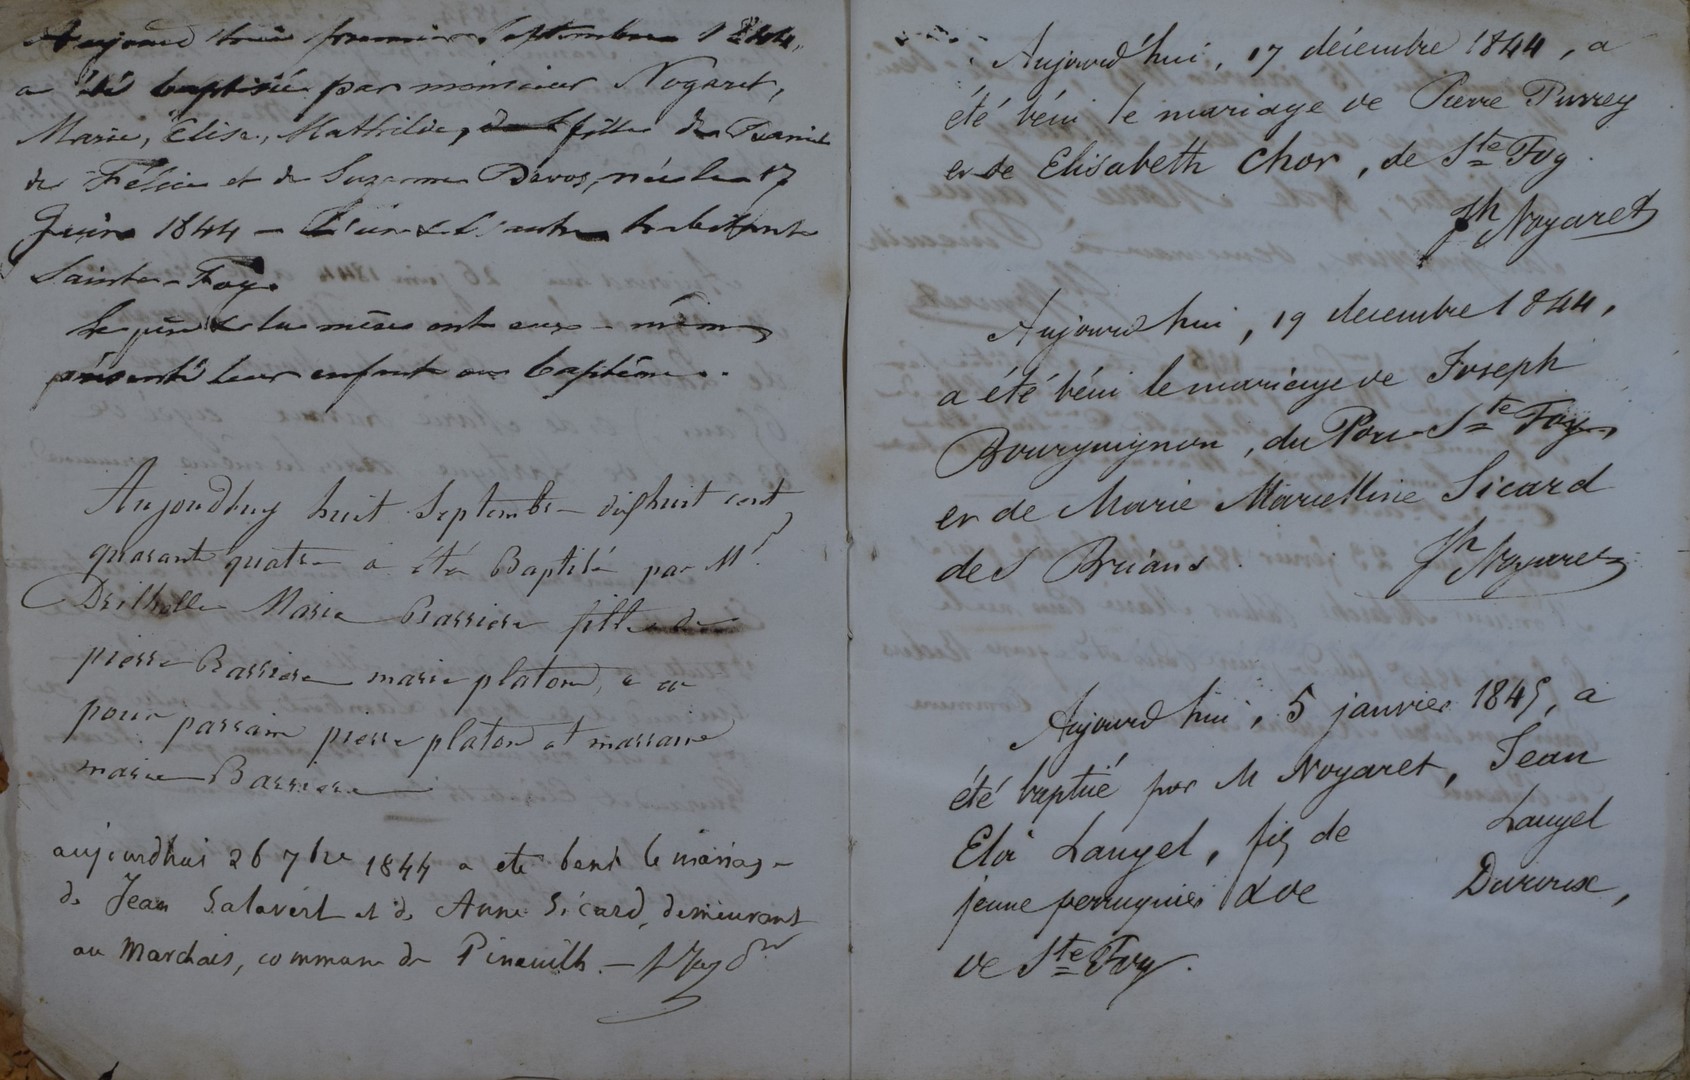 Aujourd'hui premier Septembre 1844,
a été baptisée par monsieur Nogaret,
Marie, Elise, Mathilde, fille de
de Félicie et de Suzanne Devos, née le 17
Juin 1844 — L'un & l'autre habitant
Sainte-Foy.
Le père & la mère ont eux-mêmes
présenté leur enfant au baptême.
Aujourdhuy huit Septembre dixhuit cent
quarante quatre a été Baptisé par Mr
Marie Barriere fille de
pierre Barriere marie platon, a eu
pour parrain pierre platon et marraine
marie Barriere
aujourdhui 26 7bre 1844 a eté beni le mariage
de Jean Salavert et de Anne Sicard, demeurant
au Marchais, commune de Pineuilh. —
Aujourd'hui, 17 décembre 1844, a
été béni le mariage de Pierre Purrey
et de Elisabeth Chor, de Ste Foy.
Jh Nogaret
Aujourd'hui, 19 decembre 1844,
a été béni le mariage de Joseph
Bourguignon, du Port Ste Foy,
et de Marie Marcelline Sicard
de S Brians.
Jh Nogaret
Aujourd'hui, 5 janvier 1845, a
été baptisé par M Nogaret, Jean
Eloi Laugel, fils de Laugel
jeune perruquier & de Duroux,
de Ste Foy.